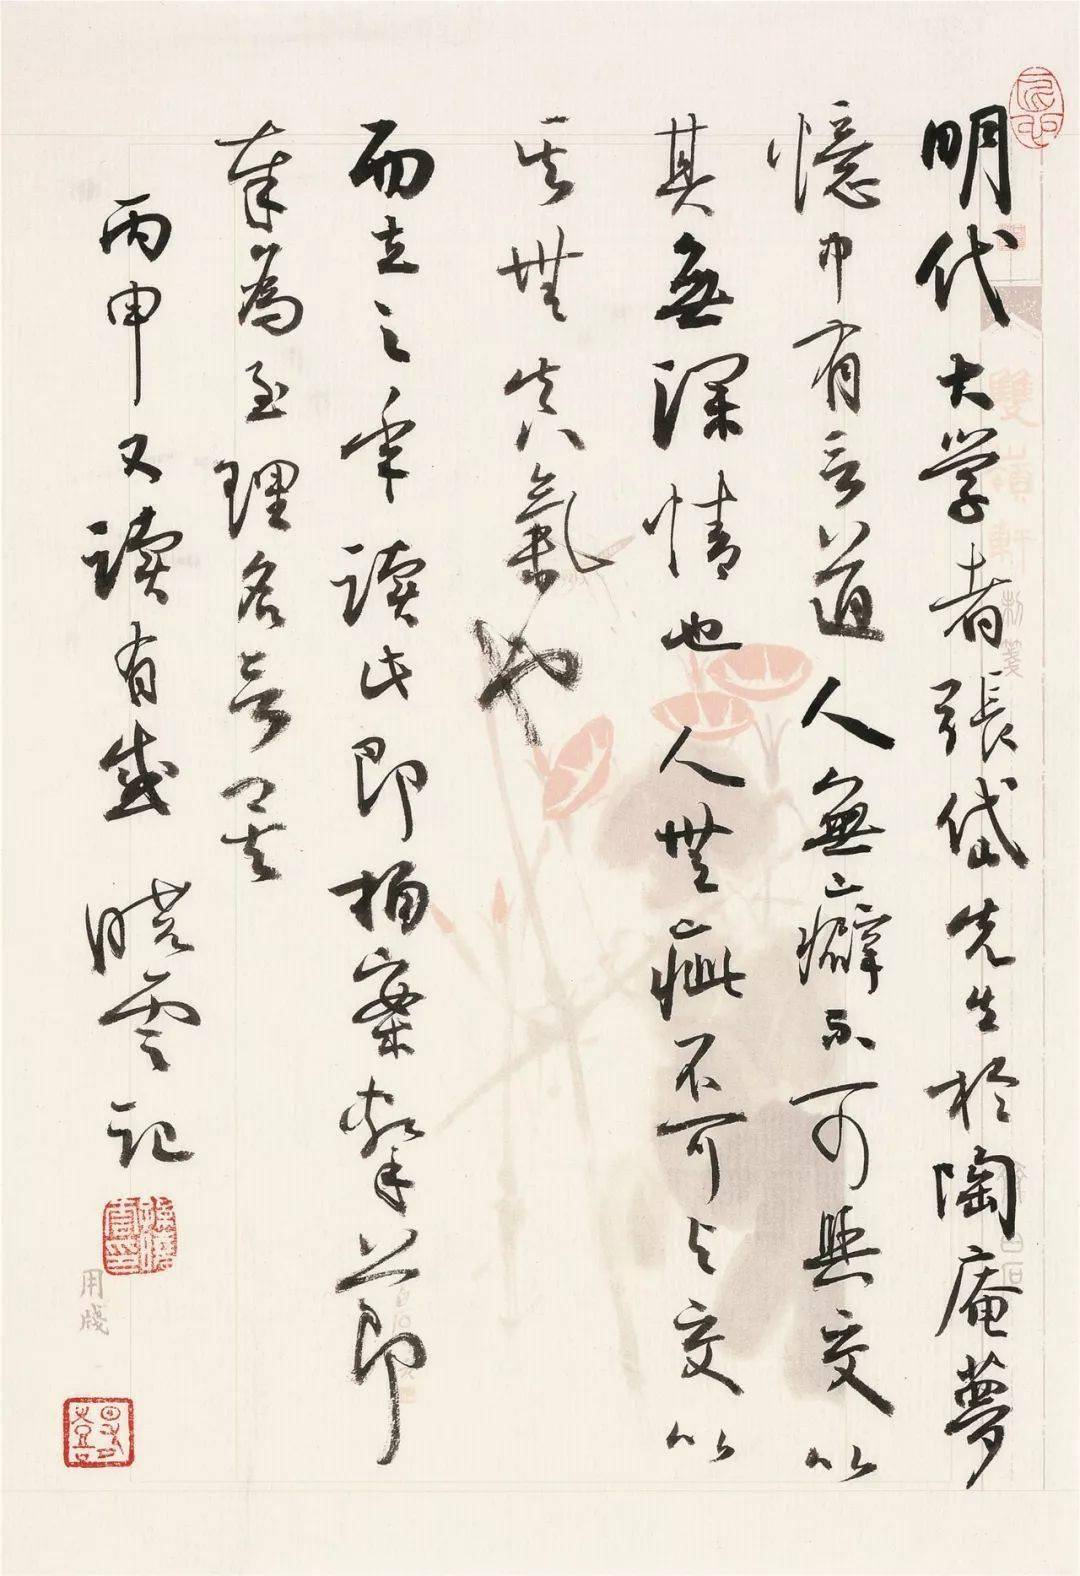 明代大学者張岱先生於陶庵夢
憶中有言道人無癖不可與交以
其無深情也人無疵不可与交以
其無真氣也
而立之年讀此即拍案擊節
奉為至理名言矣
丙申又讀有感 曉雲記
雙嶺軒制箋
用牋